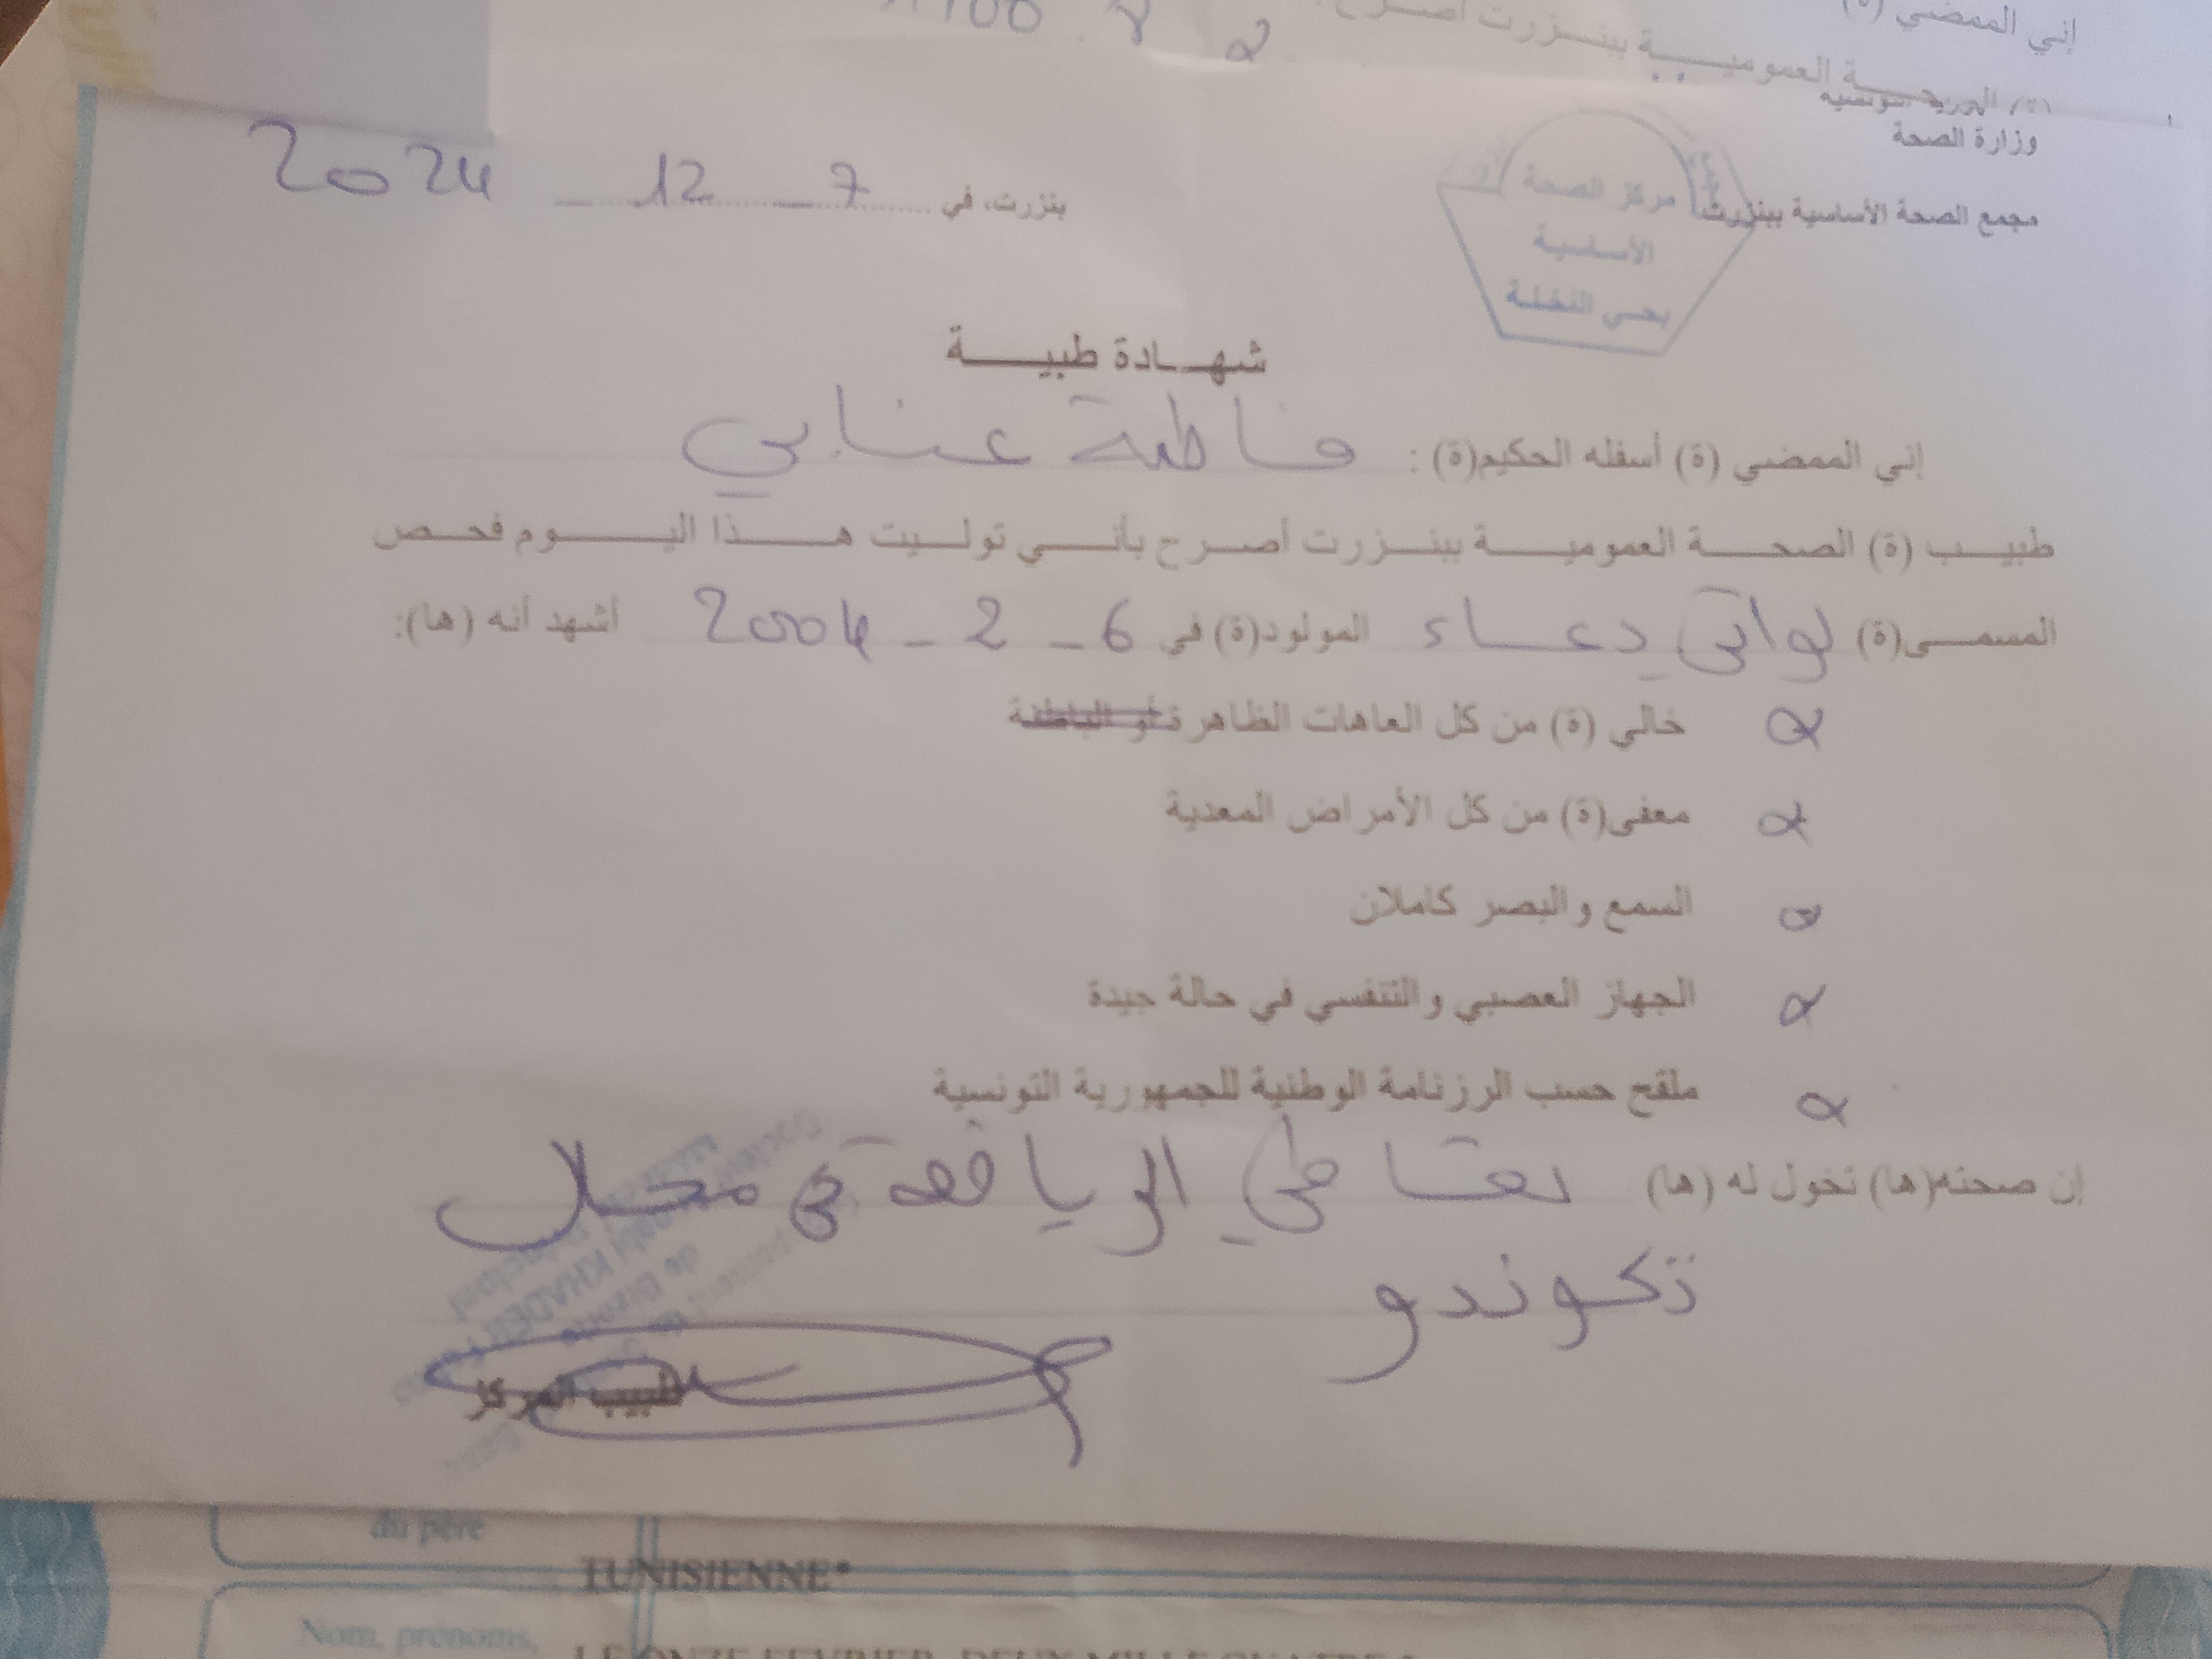 إني الممضي (ة)
الصحة العمومية ببنزرت أصرح
وزارة الصحة
مجمع الصحة الأساسية ببنزرت
مركز الصحة
الأساسية
بحي النخلة
بنزرت، في 7 - 12 - 2024
شهادة طبية
إني الممضي (ة) أسفله الحكيم(ة) : فاطمة عنابي
طبيب (ة) الصحة العمومية ببنزرت أصرح بأني توليت هذا اليوم فحص
المسمى(ة) لواتي دعاء المولود(ة) في 6 - 2 - 2004 أشهد أنه (ها):
خالي (ة) من كل العاهات الظاهرة أو الباطنة
معفى(ة) من كل الأمراض المعدية
السمع والبصر كاملان
الجهاز العصبي والتنفسي في حالة جيدة
ملقح حسب الرزنامة الوطنية للجمهورية التونسية
إن صحته(ها) تخول له (ها) تعاطي الرياضة في مجال
تكوندو
طبيب المركز
du père
TUNISIENNE*
Nom, prénoms,
LE ONZE FEVRIER DEUX MILLE QUATRE *